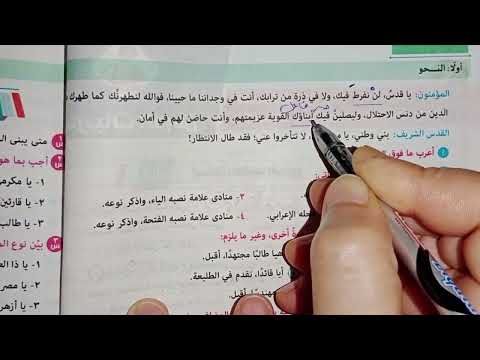 أولًا: النـــحـو
المؤمنون: يا قدسُ، لن نفرطَ فيك، ولا في ذرة من ترابك، أنت في وجداننا ما حيينا، فوالله لنطهرنَّك كما طهرك
الدين من دنس الاحتلال، وليصلينَّ فيك أبناؤك القوية عزيمتهم، وأنت حاضن لهم في أمان.
القدس الشريف: بني وطني، يا لا تتأخروا عني؛ فقد طال الانتظار!
١ أعرب ما فوق
٣- منادى علامة نصبه الياء، واذكر نوعه.
حله الإعرابي. ٤- منادى علامة نصبه الفتحة، واذكر نوعه.
أخرى، وغير ما يلزم:
هيا طالبًا مجتهدًا، أقبل.
أيا قائدًا، تقدم في الطليعة.
أقبل.
متى يبنى
أجب بما هو
١- يا مكرم
٢- يا قارئين
٣- يا طالب
بيّن نوع
١- يا ذا
٢- يا مصر
٣- يا أزهر